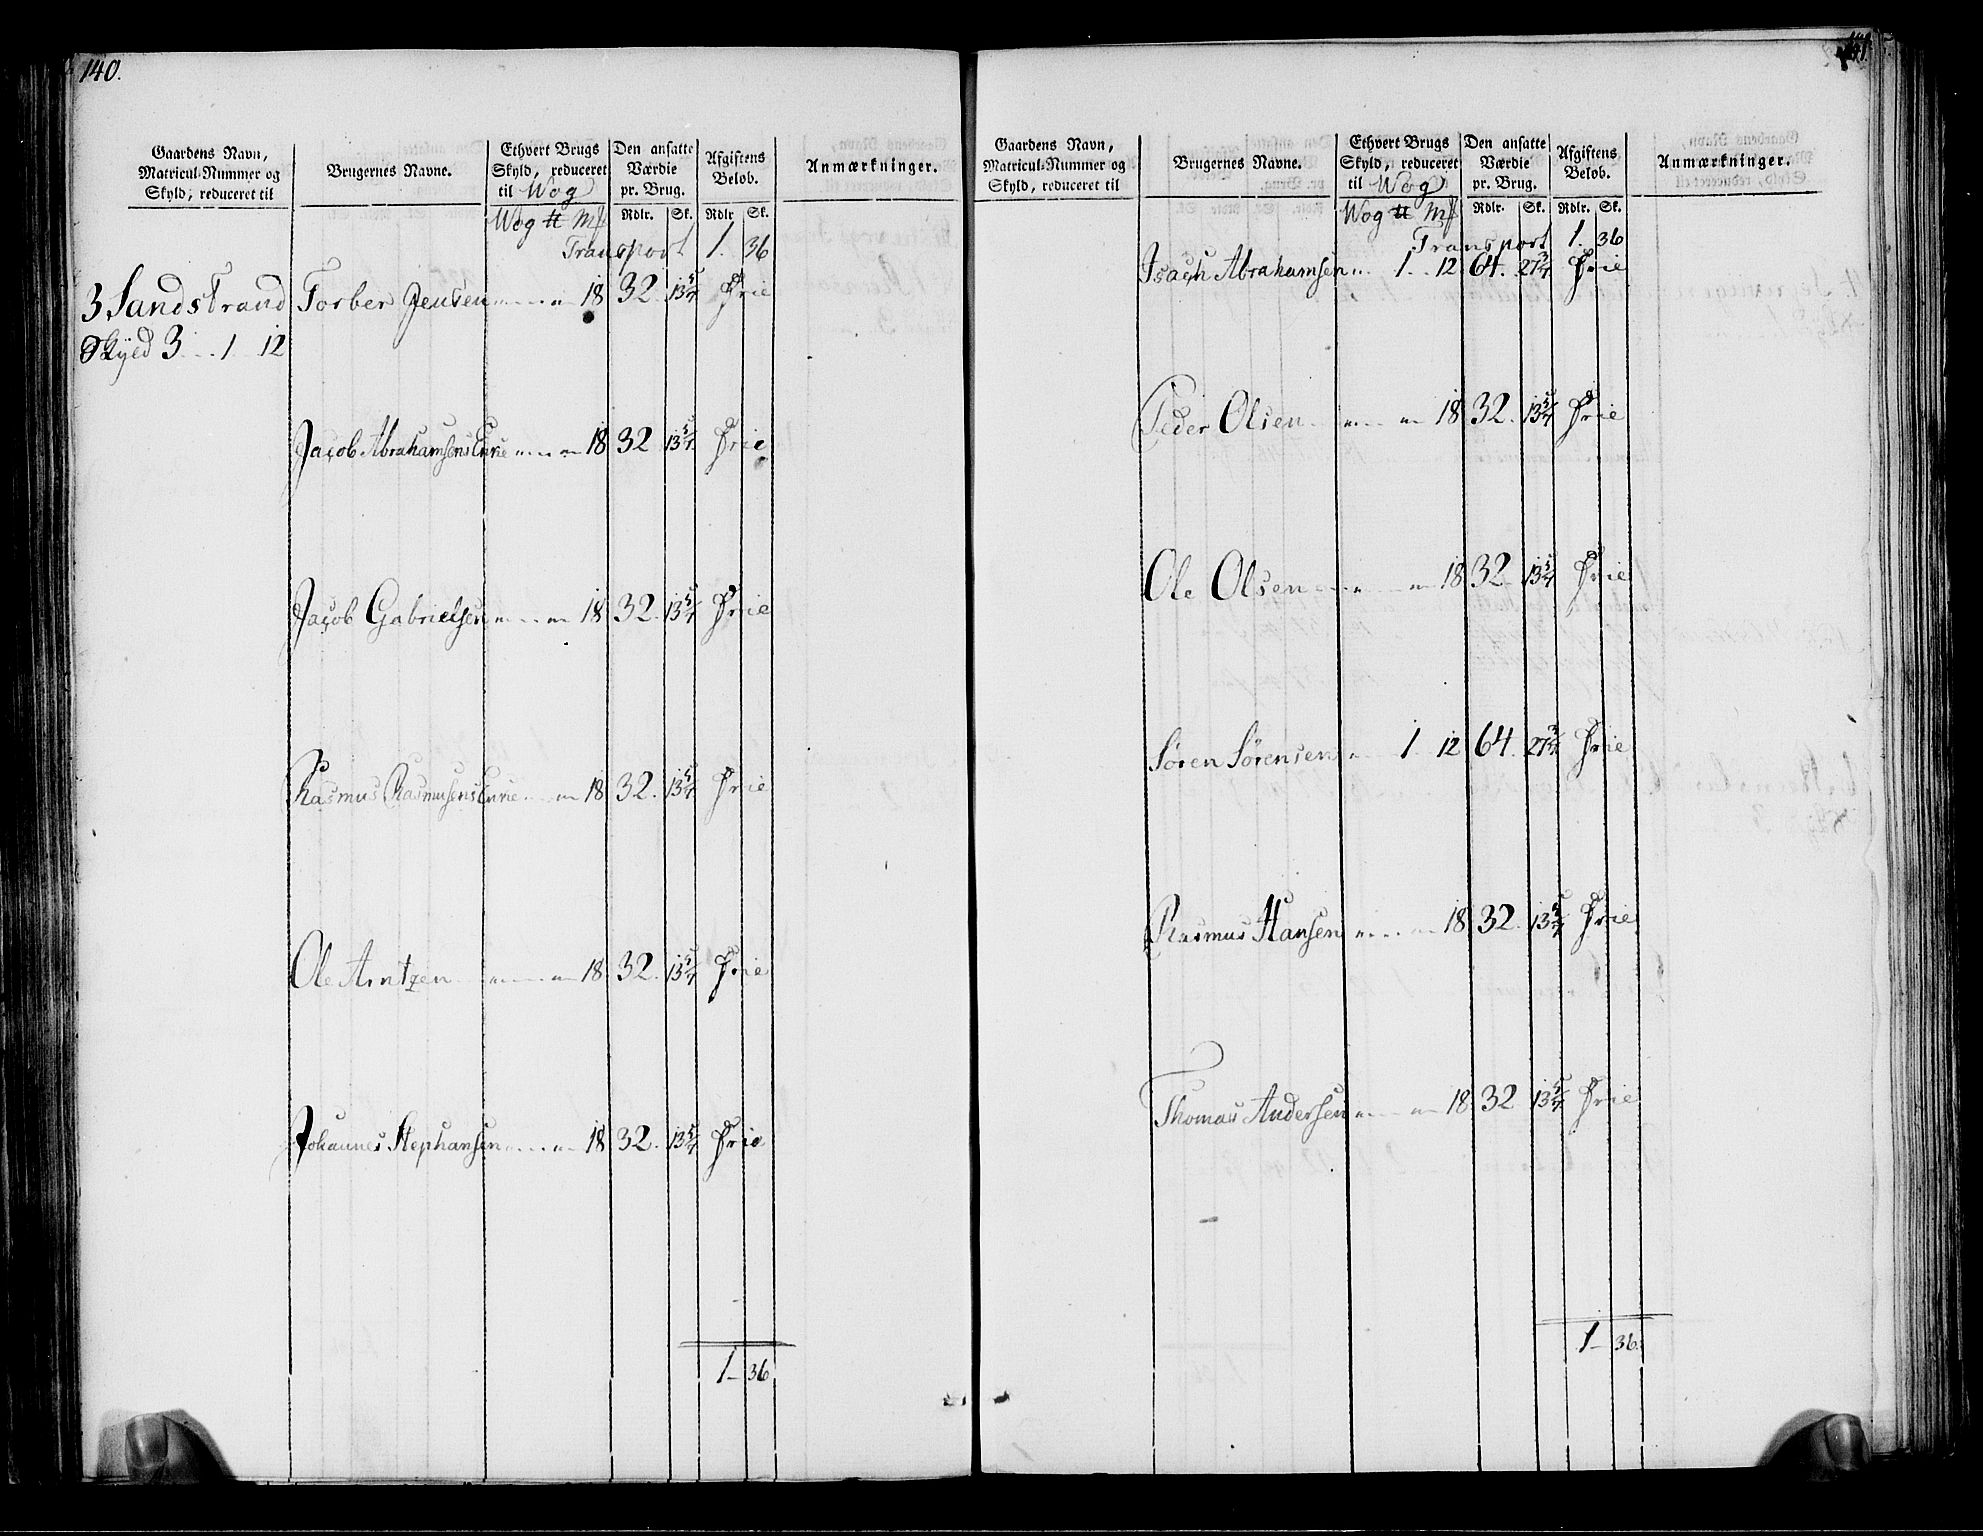 140.
Gaardens Navn, Matricul-Nummer og Skyld, reduceret til
Brugernes Navne.
Ethvert Brugs Skyld, reduceret til Wog
Den ansatte Værdie pr. Brug.
Afgiftens Beløb.
Anmærkninger.
Wog ℔ Mk Rdlr. Sk. Rdlr Sk.
Transport 1. 36
3 Sandstrand Torber Jensen 18 32 13 5/7 Frie
Skyld 3 . . 1 12
Jacob Abrahamsens Enne 18 32 13 5/7 Frie
Jacob Gabrielsen 18 32. 13 5/7 Frie
Rasmus Rasmusens Enne 18 32. 13 5/7 Frie
Ole Arntzen 18. 32. 13 5/7 Frie
Johannes Stephansen 18 32. 13 5/7 Frie
1 – 36
141.
Gaardens Navn, Matricul-Nummer og Skyld, reduceret til
Brugernes Navne.
Ethvert Brugs Skyld, reduceret til Wog
Den ansatte Værdie pr. Brug.
Afgiftens Beløb.
Anmærkninger.
Wog ℔ Mk Rdlr. Sk. Rdlr. Sk.
Transport 1. 36
Isach Abrahamsen 1 . . 12 64. 27 3/7 Frie
Peder Olsen 18 32. 13 5/7 Frie
Ole Olsen 18 32 13 5/7 Frie
Søren Sørensen 1 12 64. 27 3/7 Frie
Rasmus Hansen 18 32. 13 5/7 Frie
Thomas Andersen 18 32 13 5/7 Frie
1 – 36.